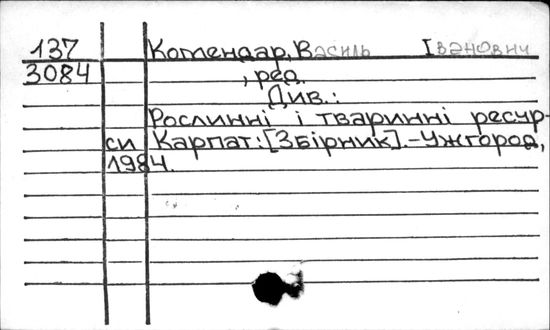 137 Комендар, Василь Іванович
3084 , ред.
Див.:
Рослинні і тваринні ресур-
си Карпат:[Збірник].-Ужгород,
1984.